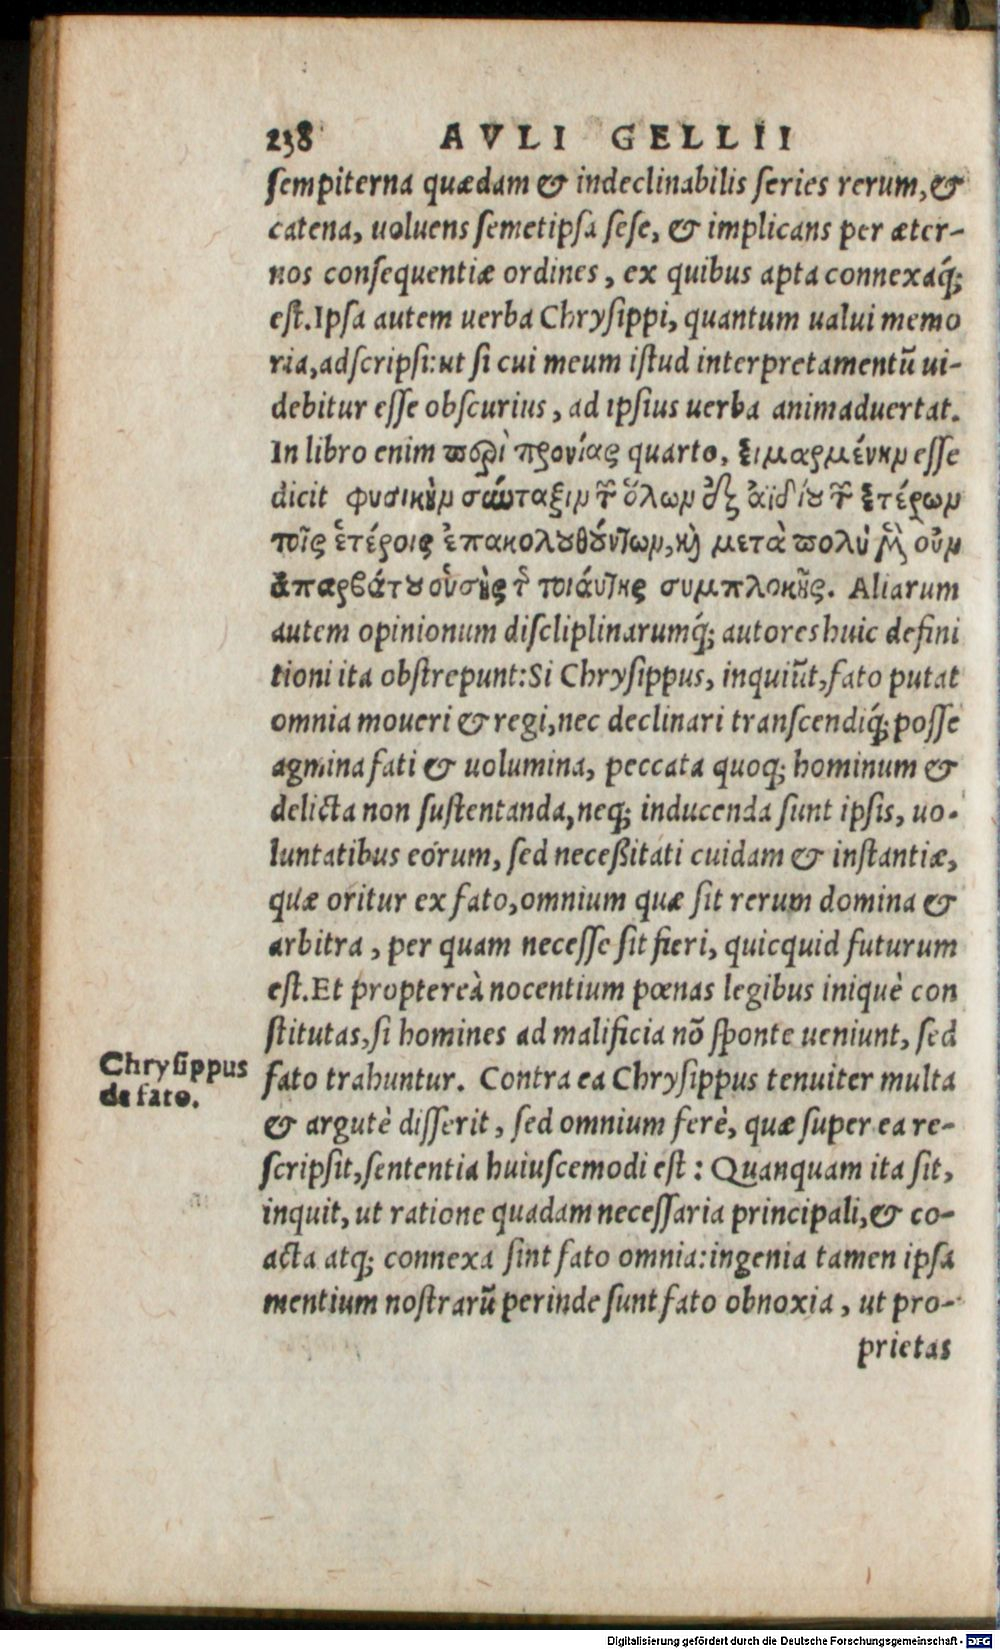 238 AVLI GELLII
sempiterna quædam & indeclinabilis series rerum, &
catena, uoluens semetipsa sese, & implicans per æter-
nos consequentiæ ordines, ex quibus apta connexaq́;
est. Ipsa autem uerba Chrysippi, quantum ualui memo
ria, adscripsi: ut si cui meum istud interpretamentũ ui-
debitur esse obscurius, ad ipsius uerba animaduertat.
In libro enim περὶ προνίας quarto, εἱμαρμένην esse
dicit φυσικὴν σύνταξιν τῶν ὅλων ἐξ ἀϊδίου τῶν ἑτέρων
τοῖς ἑτέροις ἐπακολουθούντων, καὶ μετὰ πολὺ μὲν οὖν
ἀπαρβάτου οὔσης τῆς τοιαύτης συμπλοκῆς. Aliarum
autem opinionum discliplinarumq́; autores huic defini
tioni ita obstrepunt: Si Chrysippus, inquiũt, fato putat
omnia moueri & regi, nec declinari transcendiq́; posse
agmina fati & uolumina, peccata quoq; hominum &
delicta non sustentanda, neq; inducenda sunt ipsis, uo-
luntatibus eórum, sed neceßitati cuidam & instantiæ,
quæ oritur ex fato, omnium quæ sit rerum domina &
arbitra, per quam necesse sit fieri, quicquid futurum
est. Et proptereà nocentium pœnas legibus iniquè con
stitutas, si homines ad malificia nõ sponte ueniunt, sed
fato trahuntur. Contra ea Chrysippus tenuiter multa
& argutè disserit, sed omnium ferè, quæ super ea re-
scripsit, sententia huiuscemodi est: Quanquam ita sit,
inquit, ut ratione quadam necessaria principali, & co-
acta atq; connexa sint fato omnia: ingenia tamen ipsa
mentium nostrarũ perinde sunt fato obnoxia, ut pro-
prietas
Chrysippus
de fato.
Digitalisierung gefördert durch die Deutsche Forschungsgemeinschaft - DFG